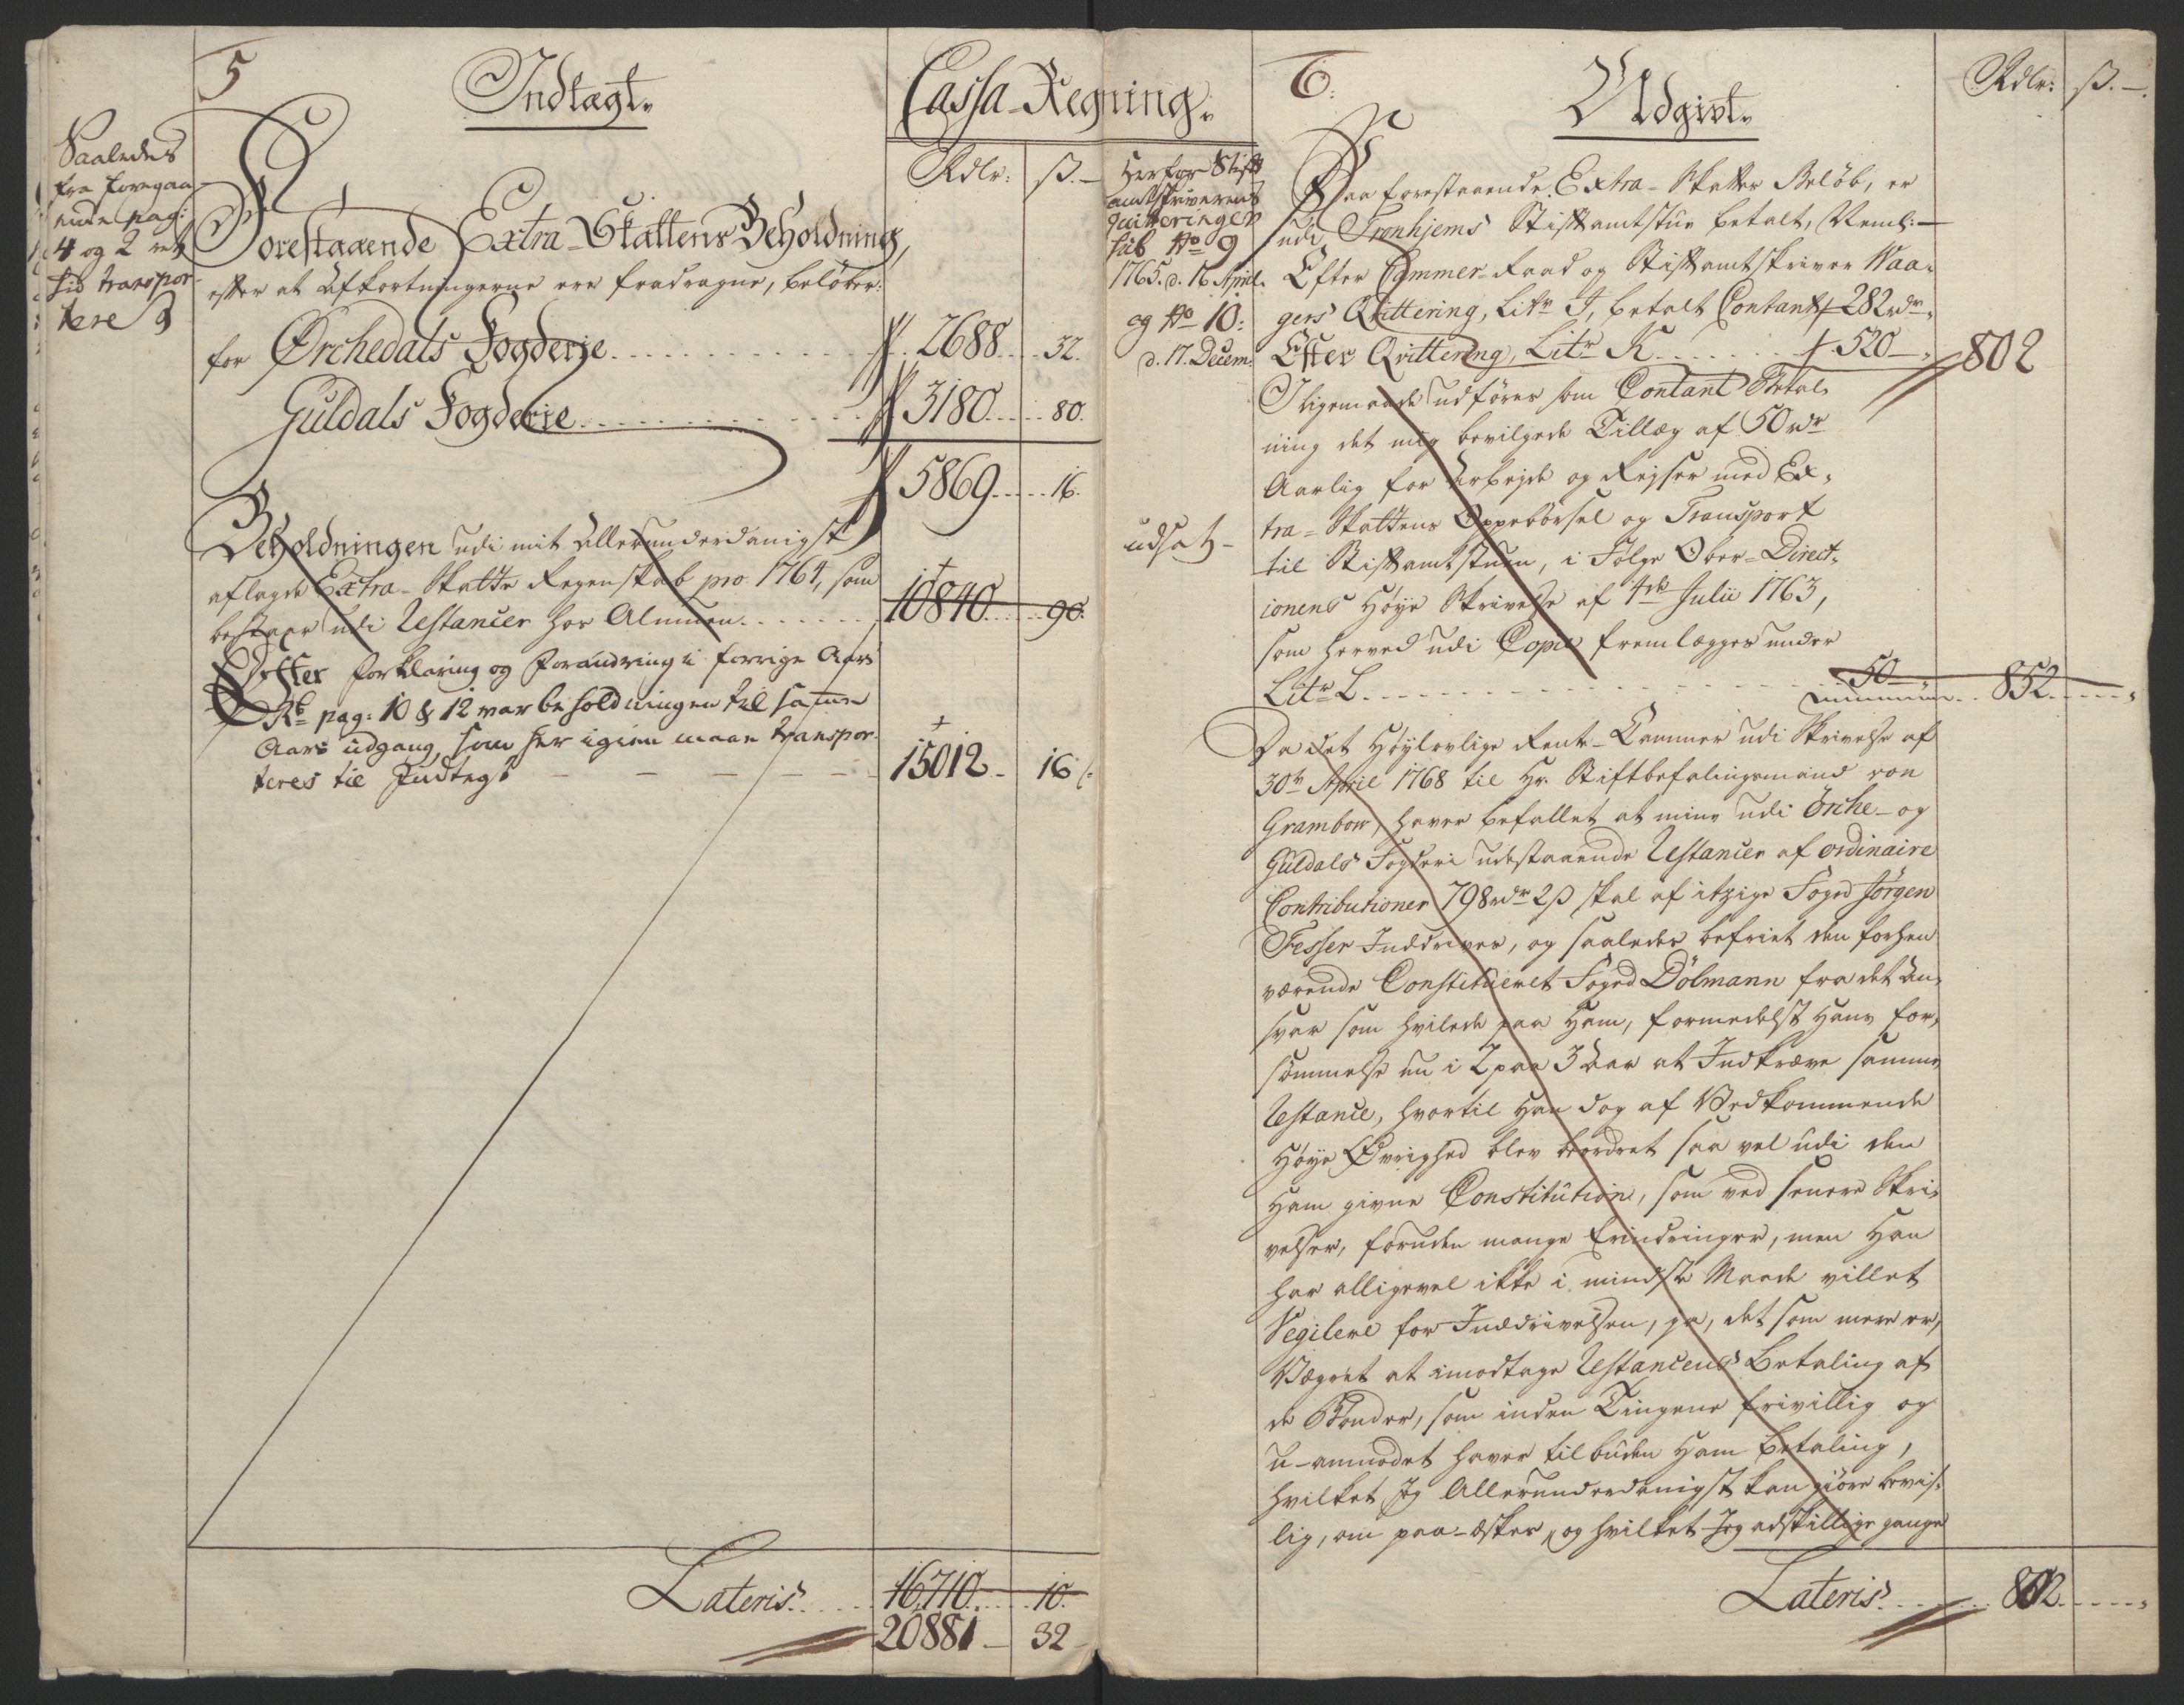 5
Indtægt.
Cassa-Regning.
Rdlr: ß.
Saaledes
fra foregaa-
ende pag:
4 og 2 ret
hid transpor-
tere
Forestaaende Extra-Skattens Beholdning,
efter at Afkortningerne ere fradragne, beløber:
for Ørchedals Fogderje . . . . . 2688 . . 32.
Guldals Fogderje . . . . . 3180 . . 80.
5869 . . 16.
Beholdningen udi mit Allerunderdanigst
aflagde Extra-Skatte Regenskab pro 1764, som
bestaar udi Restancer hos Almuen . . . . 10840 . . 90.
Efter forklaring og forandring i forrige Aars
Rb pag: 10 & 12 var beholdningen til samme
Aars udgang, som her igien maae transpor-
teres til Indtegt — — — — 15012 - 16
Lateris . . . 16710 . . 10.
20881 — 32 -
6.
Udgivt.
Rdlr: ß.
Herfor Stift
amtskriverens
quitteringer
sub No 9
1765. d. 16 April.
og No 10:
d. 17. Decem:
Paa forestaaende Extra-Skatter Beløb, er
udi Tronhjems Stiftamtstue betalt, Neml: —
Efter Cammer-Raad og Stiftamtskriver Waa-
gers Qvittering, Litr I, betalt Contant 282 rdr
Efter Qvittering, Litr K . . . . . 520 — 802
Iligemaade udføres som Contant Betal-
ning det mig bevilgede Tillæg af 50 rdr
Aarlig for Arbejde og Rejser med Ex-
tra-Skattens Oppebørsel og Transport
udsatz -
til Stiftamtstuen, i Følge Ober-Direct-
ionens Høye Skrivelse af 4de Julii 1763,
som herved udi Copie fremlægges under
Litr L . . . . . 50
852 . . .
Da det Høylovlige Rente-Cammer udi Skrivelse af
30te April 1768 til Hr. Stiftbefalingsmand von
Grambow, haver befallet at mine udi Örche- og
Guldals Fogderi udestaaende Restancer af ordinaire
Contributioner 798 rdr 2 ß skal af itzige Foged Jørgen
Fesser Inddrives, og saaledes befriet den forhen
værende Constitueret Foged Dölmann fra det An-
svar som hvilede paa Ham, formedelst Hans for-
sömmelse nu i 2 paa 3 Aar at Indkræve samme
Restance, hvortil Han dog af Vedkommende
Høye Øvrighed blev beordret saa vel udi den
Ham givne Constitution, som ved senere Skri-
velser, foruden mange Erindringer, men Han
har alligevel ikke i mindste Maade villet
Vegilere for Inddrivelsen, ja, det som mere er,
Vægret at imodtage Restancens Betaling af
de Bønder, som inden Tingene frivillig og
u-anmodet haver tilbuden Ham betaling,
hvilket Jeg Allerunderdanigst kan giøre bevis-
lig, om paa-æskes, og hvilket Jeg adskillige gange
Lateris . . . 802 . . .